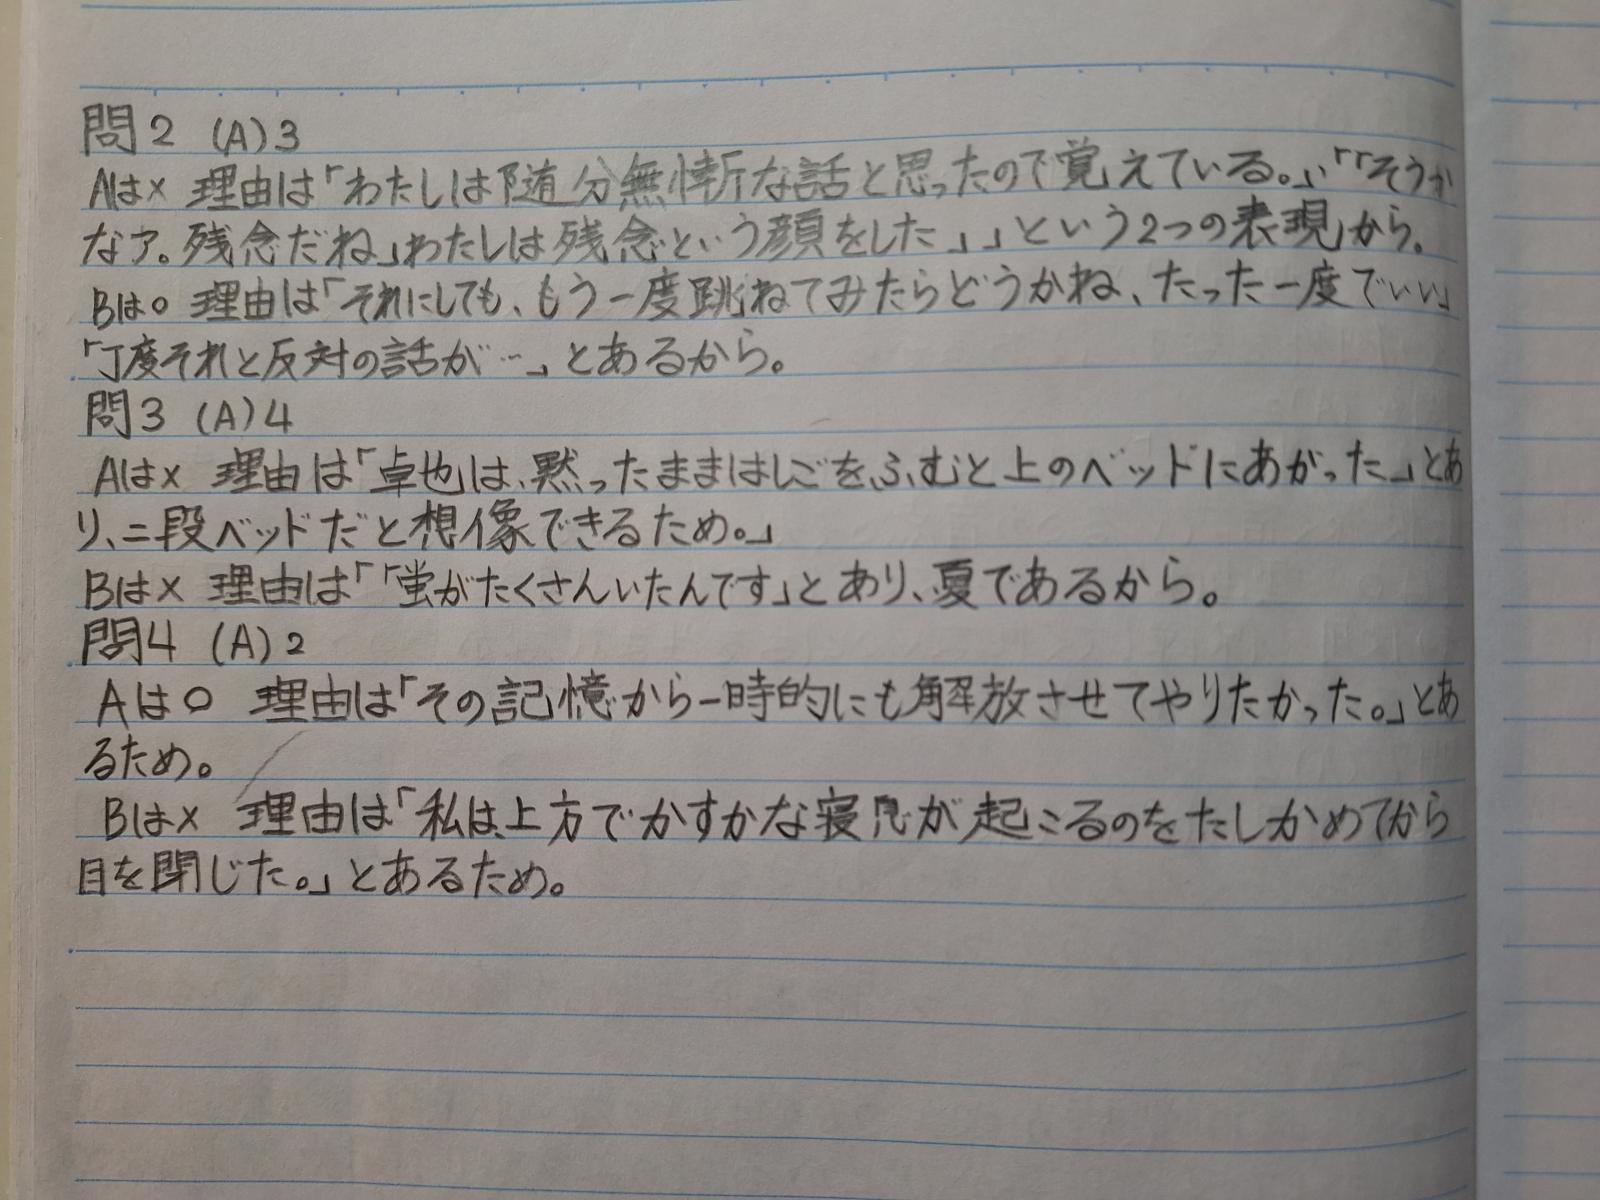 問2 (A)3
Aは× 理由は「わたしは随分無慚な話と思ったので覚えている。」、「「そうか
なア。残念だね」わたしは残念という顔をした」」という2つの表現から。
Bは○ 理由は「それにしても、もう一度跳ねてみたらどうかね、たった一度でいい」
「丁度それと反対の話が…」とあるから。
問3 (A)4
Aは× 理由は「卓也は、黙ったままはしごをふむと上のベッドにあがった」とあ
り、二段ベッドだと想像できるため。」
Bは× 理由は「「蛍がたくさんいたんです」とあり、夏であるから。
問4 (A)2
Aは○ 理由は「その記憶から一時的にも解放させてやりたかった。」とあ
るため。
Bは× 理由は「私は、上方でかすかな寝息が起こるのをたしかめてから
目を閉じた。」とあるため。